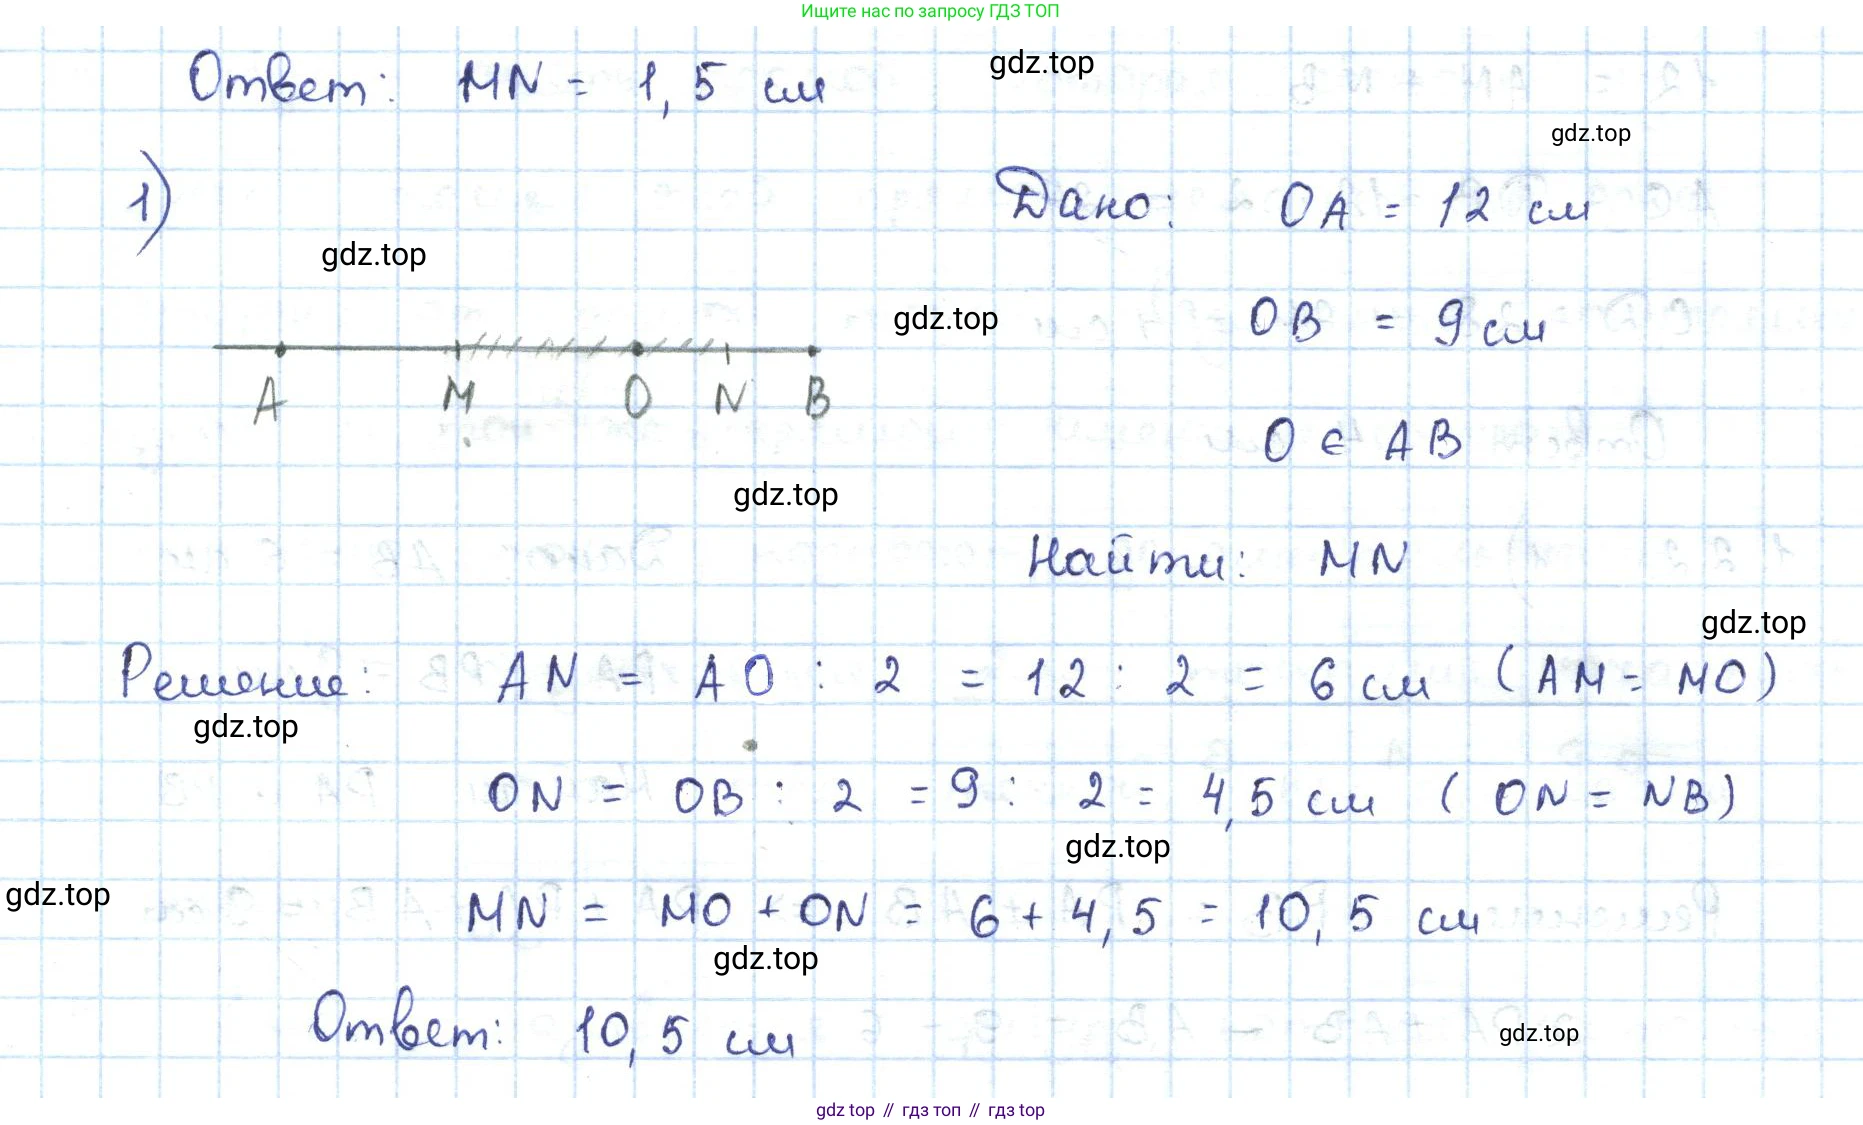 Ищите нас по запросу ГДЗ ТОП
Ответ: MN = 1,5 см
gdz.top
gdz.top
1)
Дано: OA = 12 см
gdz.top
OB = 9 см
gdz.top
A M O N B
O ∈ AB
gdz.top
Найти: MN
gdz.top
Решение: AN = AO : 2 = 12 : 2 = 6 см (AM = MO)
gdz.top
ON = OB : 2 = 9 : 2 = 4,5 см (ON = NB)
gdz.top
gdz.top
MN = MO + ON = 6 + 4,5 = 10,5 см
gdz.top
Ответ: 10,5 см
gdz.top
gdz top // гдз топ // gdz top